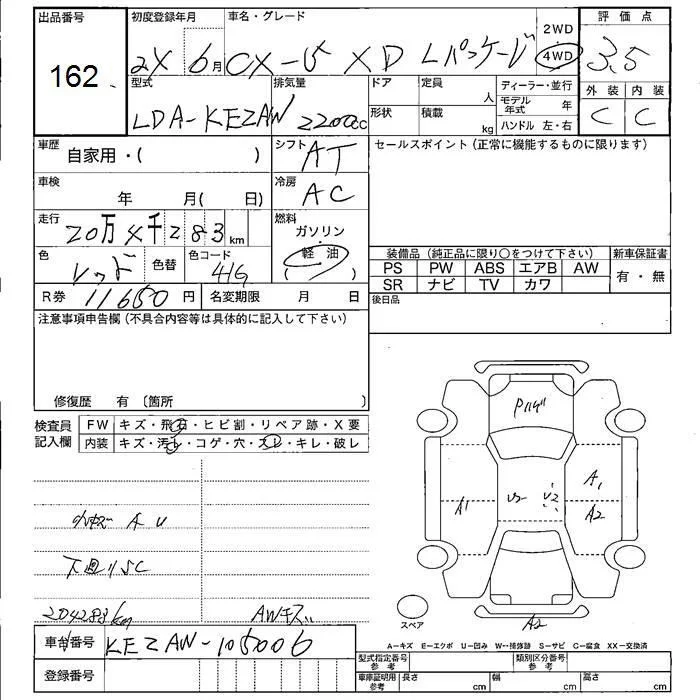 出品番号 初度登録年月 車名・グレード 評価点
162 2X 6月 CX-5 XD Lパッケージ 2WD 4WD 3.5
型式 LDA-KE2AW 排気量 2200cc
ドア 定員 人 ディーラー・並行 外装 内装
形状 積載 kg モデル年式 年 C C
ハンドル 左・右
車歴 自家用・( ) シフト AT セールスポイント(正常に機能するものに限ります)
車検 年 月( 日) 冷房 AC
走行 20万4千283km 燃料 ガソリン
軽油
( )
色 レッド 色替 色コード 41G
装備品(純正品に限り○をつけて下さい) 新車保証書
PS PW ABS エアB AW 有・無
SR ナビ TV カワ
R券 11650円 名変期限 月 日 後日品
注意事項申告欄(不具合内容等は具体的に記入して下さい)
修復歴 有 〔箇所 〕
検査員 FW キズ・飛石・ヒビ割・リペア跡・X要
記入欄 内装 キズ・汚レ・コゲ・穴・スレ・キレ・破レ
A1 U2 U2 A1
A2
A U
下廻りSC
204283km AWキズ
スペア A2
A-キズ E-エクボ U-凹み W-補修跡 S-サビ C-腐食 XX-交換済
車台番号 KE2AW-105006
登録番号
型式指定番号 参考 類別区分番号 参考
車庫証明用 参考 長さ cm 幅 cm 高さ cm